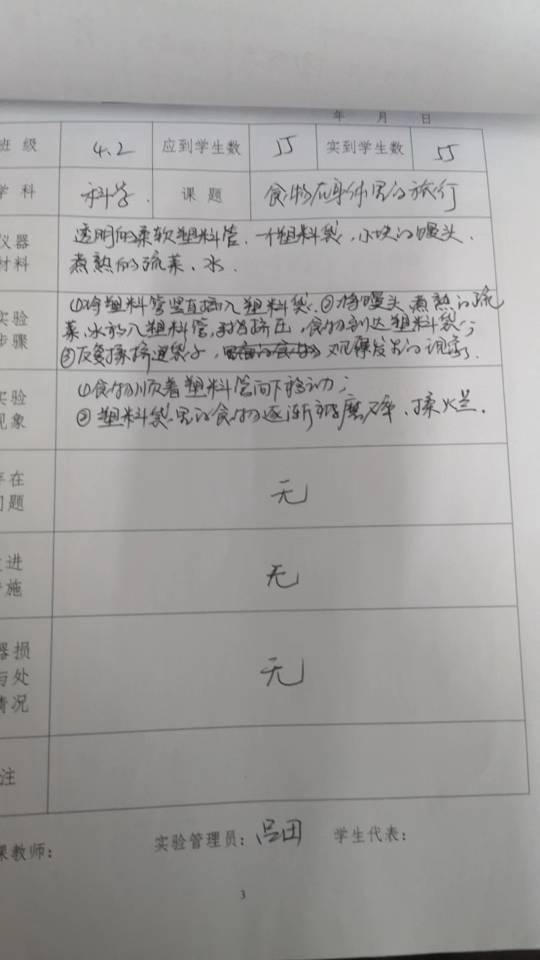 年 月 日
班 级 4.2 应到学生数 55 实到学生数 55
学 科 科学. 课 题 食物在身体里的旅行
仪器 透明的柔软塑料管. 一个塑料袋, 小块的馒头.
材料 煮熟的蔬菜、水.
实验 ①将塑料管竖直插入塑料袋.②将馒头、煮熟的蔬
步骤 菜、水放入塑料管, 挤压, 食物到达塑料袋;
③反复揉挤这袋子, 观察发生的现象.
实验 ①食物顺着塑料管向下移动;
现象 ②塑料袋里的食物逐渐被磨碎、揉烂.
存在
问题 无
改进
措施 无
器损
与处 无
情况
注
课教师: 实验管理员: 吕田 学生代表:
3